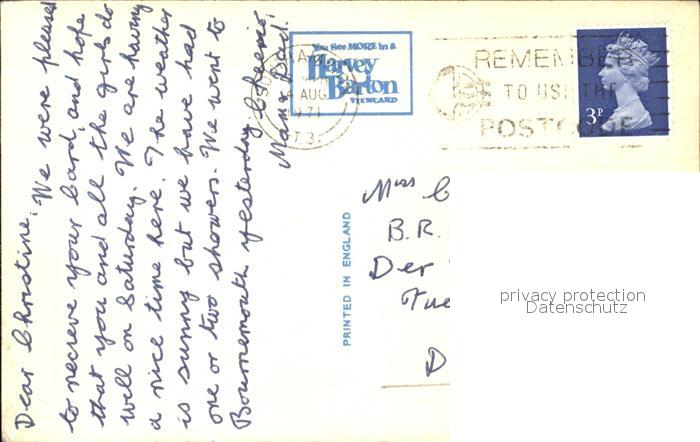 Dear Christine, We were pleased
to recieve your card, and hope
that you and all the girls do
well on Saturday. We are having
a nice time here. The weather
is sunny but we have had
one or two showers. We went to
Bournemouth yesterday. Cheerio
Mam & Dad!
You See MORE in a
Harvey
Barton
VIEWCARD
AUG
1971
REMEMBER
TO USE THE
POSTCODE
3P
PRINTED IN ENGLAND
Miss C
B.R.
Der
Fue
D
privacy protection
Datenschutz